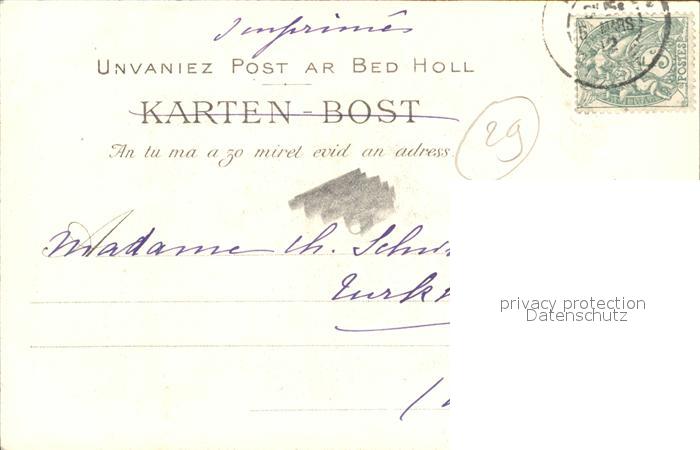 Imprimés
UNVANIEZ POST AR BED HOLL
KARTEN-BOST
An tu ma a zo miret evid an adress
29
5
POSTES
MARS
Madame Ch.
privacy protection
Datenschutz